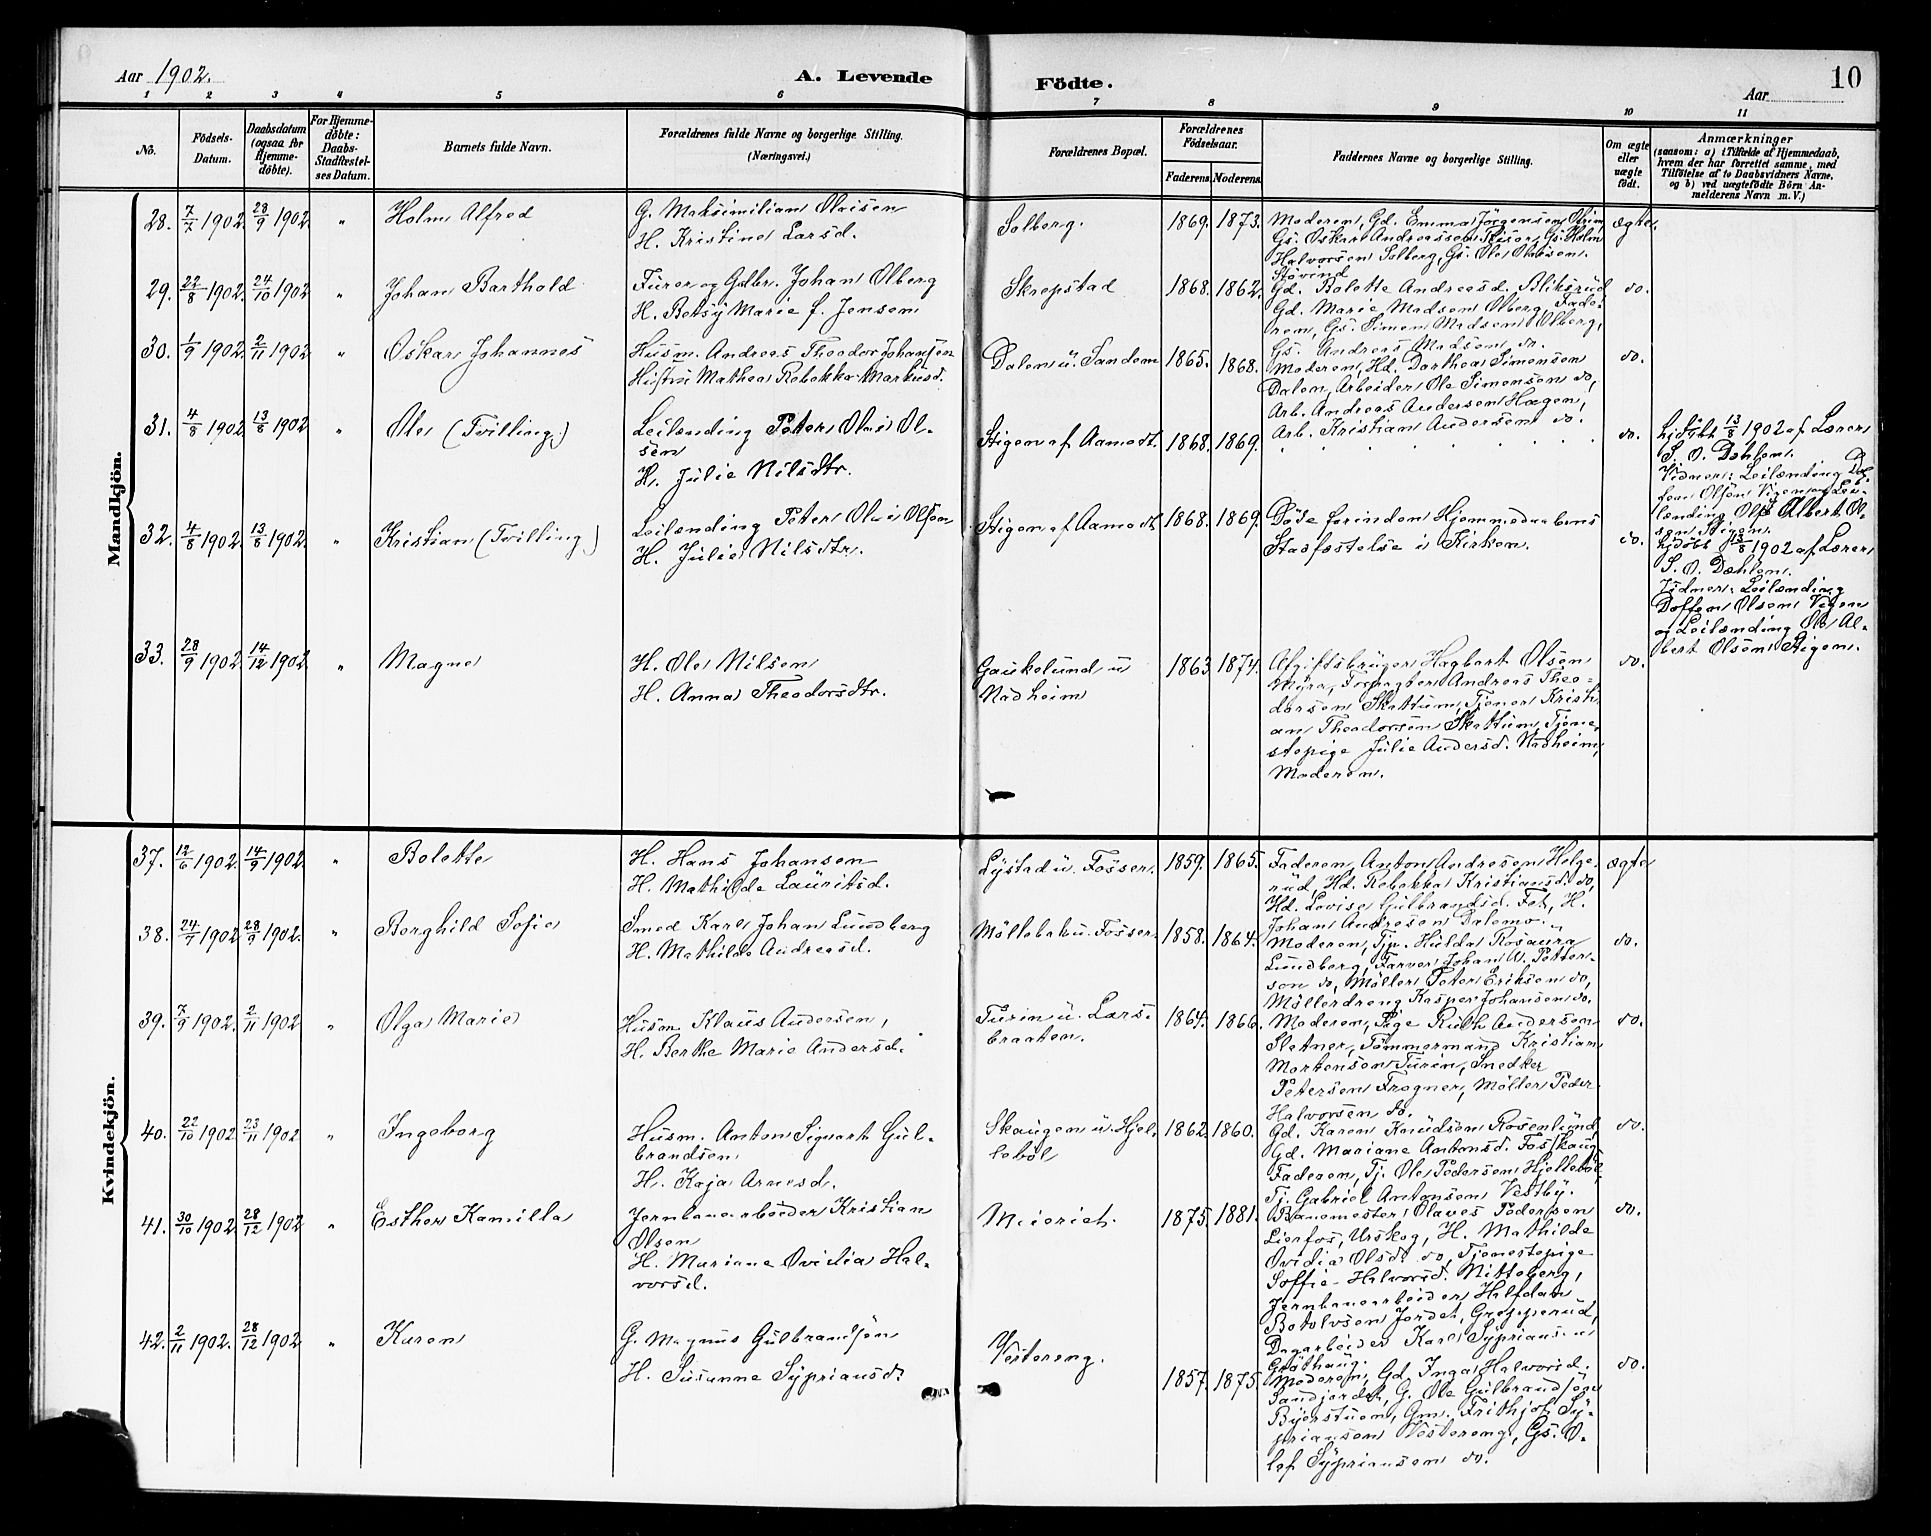 Aar 1902.
A. Levende
Födte.
Aar
10
1 2 3 4 5 6 7 8 9 10 11
No.
Födsels-
Datum.
Daabsdatum
(ogsaa for
Hjemme-
döbte).
For Hjemme-
döbte:
Daabs-
Stadfæstel-
ses Datum.
Barnets fulde Navn.
Forældrenes fulde Navne og borgerlige Stilling.
(Næringsvei.)
Forældrenes Bopæl.
Forældrenes
Födselsaar.
Faderens. Moderens.
Faddernes Navne og borgerlige Stilling.
Om ægte
eller
uægte
födt.
Anmærkninger
(saasom: a) i Tilfælde af Hjemmedaab,
hvem der har forrettet samme, med
Tilföielse af to Daabsvidners Navne,
og b) ved uægtefödte Börn An-
melderens Navn m. V.)
Mandkjön.
28. 7/7 1902. 28/9 1902 " Holm Alfred
G. Maksimilian Olaisen
H. Kristine Larsd.
Solberg. 1869. 1873.
Moderen, Gd. Emma Jörgensen
Gs. Oskar Andreassen Gs. Holm
Halvorsen Solberg, Gs. Ole Olaisen.
Støvind
ægte.
29. 22/8 1902. 24/10 1902 " Johan Barthold
Furer og Gdbr. Johan Olberg
H. Betsy Marie f. Jensen
Skrepstad 1868. 1862.
Gd. Bolette Andreasd. Bliksrud
Gd. Marie Madsen Olberg, Fade-
ren, Gs. Simen Madsen Olberg,
Gs. Andreas Madsen do.
do.
30. 1/9 1902. 2/11 1902 " Oskar Johannes
Husm. Andreas Theodor Johansen
Hustru Mathea Rebekka Markusd.
Dalen u. Sandem 1865. 1868.
Moderen, Hd. Dorthea Simensen
Dalen, Arbeider Ole Simensen do,
Arb. Andreas Andersen Hagen,
Arb. Kristian Andersen do.
do.
31. 4/8 1902. 13/8 1902 " Ole (Tvilling)
Leilænding Peter Olai Ol-
sen
H. Julie Nilsdtr.
Stigen af Aamodt. 1868. 1869.
do.
hjdøbt 13/8 1902 af Lærer
S. O. Dæhlen.
Vidner: Leilænding
Olsen Vigen og Lei-
lænding Ole Albert Ol-
sen Stigen.
32. 4/8 1902. 13/8 1902. " Kristian (Tvilling)
Leilænding Peter Olai Olsen
H. Julie Nilsdtr.
Stigen af Aamodt 1868. 1869.
Døde forinden Hjemmedaabens
Stafæstelse i Kirken.
do.
hjdøbt 13/8 1902 af Lærer
S. O. Dæhlen.
Vidner: Leilænding
Doffen Olsen Vigen
og Leilænding Ole Al-
bert Olsen Stigen.
33. 28/9 1902. 14/12 1902 " Magne
H. Ole Nilsen
H. Anna Theodorsdtr.
Gaukelund u
Nadheim
1863 1874.
Afgiftsbruger Hagbart Olsen
Myra, Forpagter Andreas Theo-
dorsen Skattum, Tjener Kristi-
an Theodorsen Skattum, Tjene-
stepige Julie Andersd. Nadheim,
Moderen.
do.
Kvindekjön.
37. 12/6 1902. 14/9 1902 " Bolette
H. Hans Johansen
H. Mathilde Lauritsd.
Lystad u. Fosser. 1859. 1865.
Faderen, Anton Andresen Helge-
rud, Hd. Rebekka Kristiansd. do,
Hd. Lovise Gulbrandsd. Fet, H.
Johan Andresen Dalemo.
ægte
38. 24/7 1902. 28/9 1902. " Borghild Sofie
Smed Karl Johan Lundberg
H. Mathilde Andreasd.
Møllebak u. Fosser. 1858. 1864.
Moderen, Tjp. Hulda Rosaura
Lundberg, Farver Johan A. Petter-
son do, Møller Peter Eriksen do,
Møllerdreng Kasper Johansen do.
do.
39. 7/9 1902. 2/11 1902 " Olga Marie
Husm. Klaus Andersen,
H. Berthe Marie Andersd.
Turin u. Lars-
braaten.
1864. 1866.
Moderen, Pige Ruth Andersen
Sletner, Tømmermand Kristian
Mortensen Turin, Snedker
Petersen Frogner, Møller Peder
Halvorsen do.
do.
40. 22/10 1902 23/11 1902 " Ingeborg
Husm. Anton Sigvart Gul-
brandsen
H. Kaja Arnesd.
Skaugen u. Hjel-
lebøl
1862. 1860.
Gd. Karen Knudsen Rosenlund,
Gd. Mariane Antonsd. Fosskaug
Faderen, Tj. Ole Pedersen Hjellebøl,
Tj. Gabriel Antonsen Vestby.
do.
41. 30/10 1902 28/12 1902 " Esther Kamilla
Jernbanearbeider Kristian
Olsen
H. Mariane Ovidia Hal-
vorsd.
Meieriet. 1875. 1881.
Banemester Olaves Pedersen
Lierfos, Urskog, H. Mathilde
Ovidia Olsd. do, Tjenestepige
Soffie Halvorsd. Mitteberg,
Jernbanearbeider Halfdan
Botolvsen Jordet, Grepperud,
Dagarbeider Karl Sypriansen
Grøthaug.
do.
42. 2/11 1902. 28/12 1902 " Karen
G. Magnus Gulbrandsen
H. Susanne Sypriansd.
Vestereng. 1857. 1875.
Moderen, Gd. Inga Halvorsd.
Sandjordet, G. Ole Gulbrandsen
Byerstuen, Gm. Frithjof Sy-
priansen Vestereng, Gs. O-
laf Sypriansen do.
do.